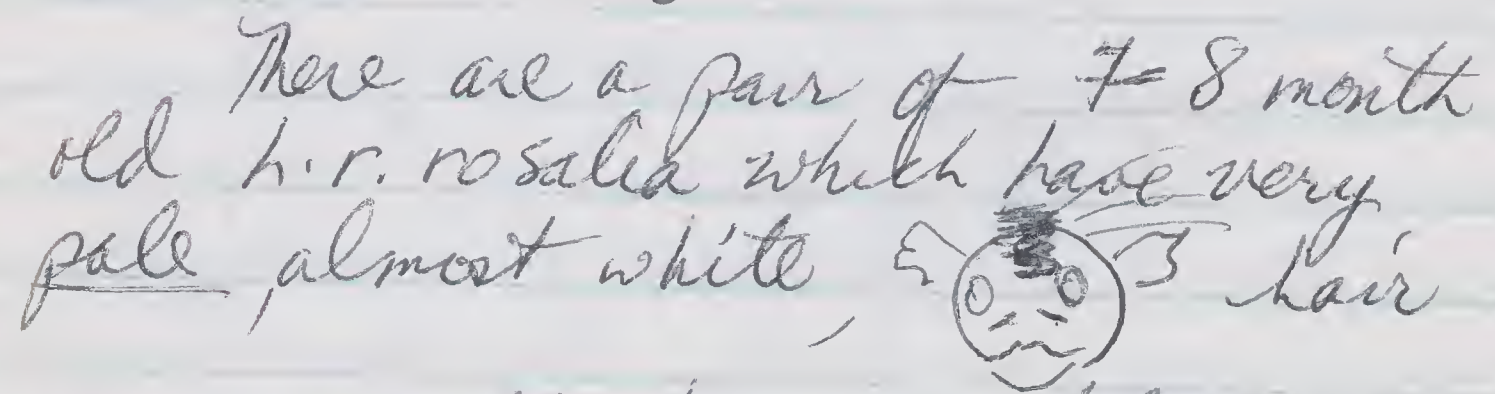 There are a pair of 7-8 month
old h.r. rosalia which have very
pale, almost white, hair